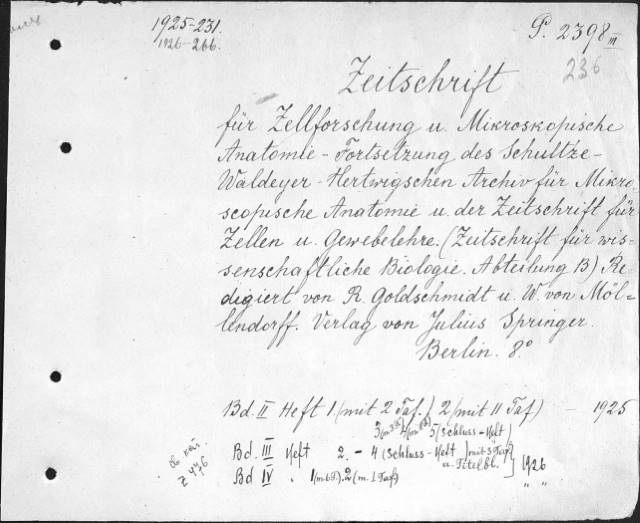 1925-231.
1926-266.
P. 2398 III
236
Zeitschrift
für Zellforschung u. Mikroskopische
Anatomie - Fortsetzung des Schultze-
Waldeyer-Hertwigschen Archiv für Mikro-
scopische Anatomie u. der Zeitschrift für
Zellen u. Gewebelehre. (Zeitschrift für wis-
senschaftliche Biologie. Abteilung B) Re-
digiert von R. Goldschmidt u. W. von Möl-
lendorff. Verlag von Julius Springer.
Berlin. 8°
Bd. II Heft 1 (mit 2 Taf.) 2 (mit 11 Taf) - 1925
5 (Schluss-Heft)
Bd. III Heft 2. - 4 (Schluss-Heft) mit 3 Taf
u. Titelbl.
1926
Bd IV " 1 (m 6 T). 2 (m. 1 Taf) " "
Z 476